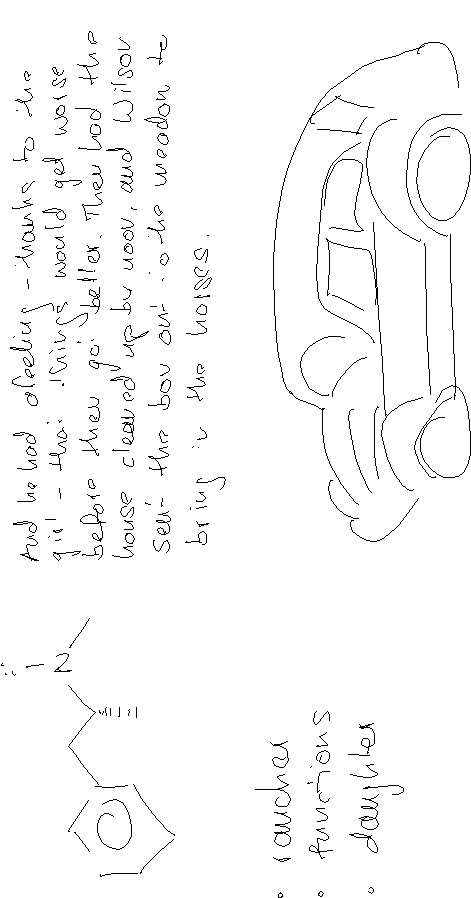 And he had a feeling - thanks to the
girl - that things would get worse
before they got better. They had the
house cleaned up by noon, and Wilson
sent the boy out to the meadow to
bring in the horses.
H N
• rancher
• functions
• daughter